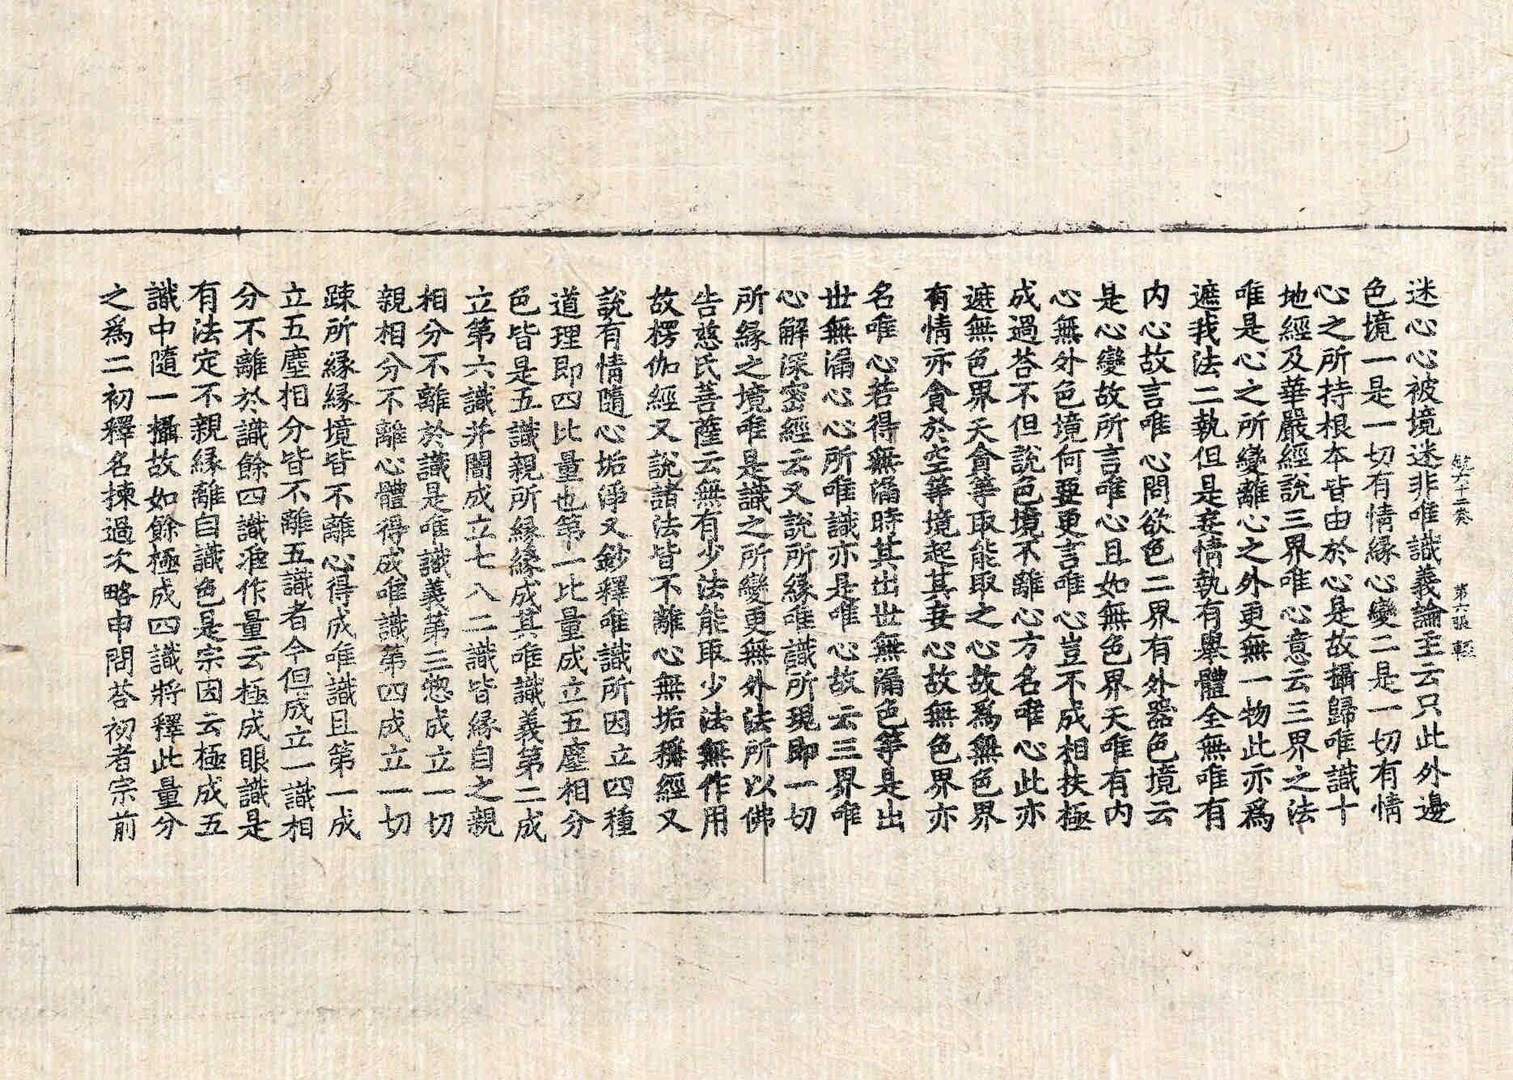 迷心心被境迷非唯識義論至云只此外邊
色境一是一切有情緣心變二是一切有情
心之所持根本皆由於心是故攝歸唯識十
地經及華嚴經說三界唯心意云三界之法
唯是心之所變離心之外更無一物此亦為
遮我法二執但是妄情執有舉體全無唯有
內心故言唯心問欲色二界有外器色境云
是心變故所言唯心且如無色界天唯有內
心無外色境何要更言唯心豈不成相扶極
成過荅不但說色境不離心方名唯心此亦
遮無色界天貪等取能取之心故為無色界
有情亦貪於空等境起其妄心故無色界亦
名唯心若得無漏時其出世無漏色等是出
世無漏心心所唯識亦是唯心故云三界唯
心解深密經云又說所緣唯識所現即一切
所緣之境唯是識之所變更無外法所以佛
告慈氏菩薩云無有少法能取少法無作用
故楞伽經又說諸法皆不離心無垢稱經又
說有情隨心垢淨又鈔釋唯識所因立四種
道理即四比量也第一比量成立五塵相分
色皆是五識親所緣緣成其唯識義第二成
立第六識并闇成立七八二識皆緣自之親
相分不離於識是唯識義第三揔成立一切
親相分不離心體得成唯識第四成立一切
踈所緣緣境皆不離心得成唯識且第一成
立五塵相分皆不離五識者今但成立一識相
分不離於識餘四識准作量云極成眼識是
有法定不親緣離自識色是宗因云極成五
識中隨一攝故如餘極成四識將釋此量分
之為二初釋名揀過次略申問荅初者宗前
第六張 輕